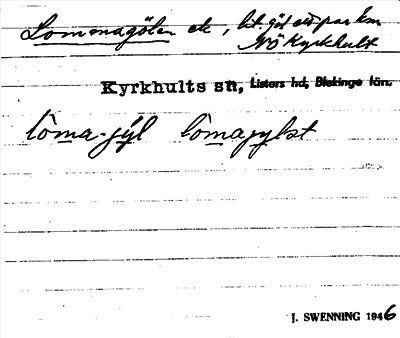 Lommagölen ek, lit. göl ett par km
NÖ Kyrkhult
Kyrkhults sn, Listers hd, Blekinge län.
lòma-jýl lòmajylst
J. SWENNING 1946